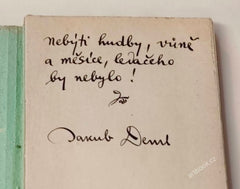 nebýti hudby, vůně
a měsíce, ledačeho
by nebylo!
Jakub Deml